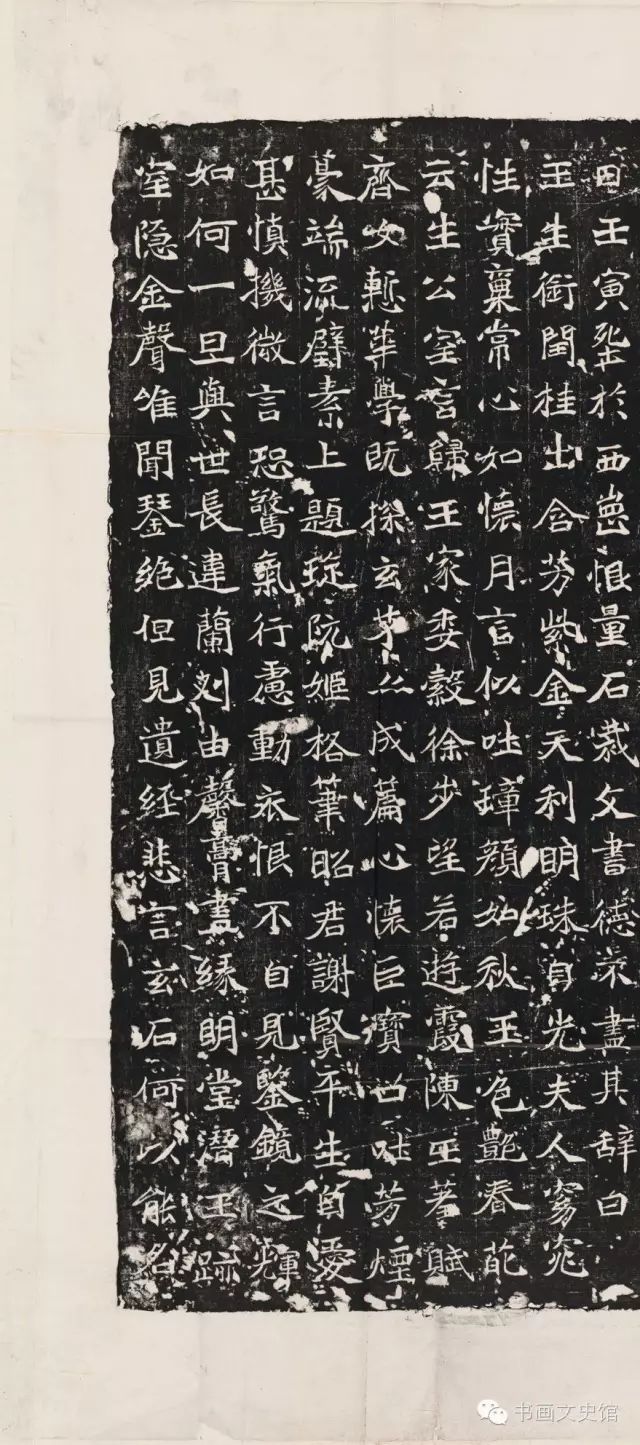 日壬寅塟於西崗恨量石裁文書德不盡其辞曰
玉生銜閏桂出含芳紫金天利明珠自光夫人窈窕
性實稟常心如懷月言似吐璋顏如秋玉色艷春葩
云生公室言歸王家委縠徐步望若遊霞陳王著賦
齊女慙華學既探玄才亦成篇心懷巨寶口吐芳煙
豪端流璧素上題琁阮姬格筆昭君謝賢平生自愛
甚慎機微言恐驚氣行慮動衣恨不自見鑒鏡之輝
如何一旦與世長違蘭刈由馨膏盡緣明堂潛玉跡
室隐金聲唯聞琴絶但見遺經悲言玄石何以能名
书画文史馆